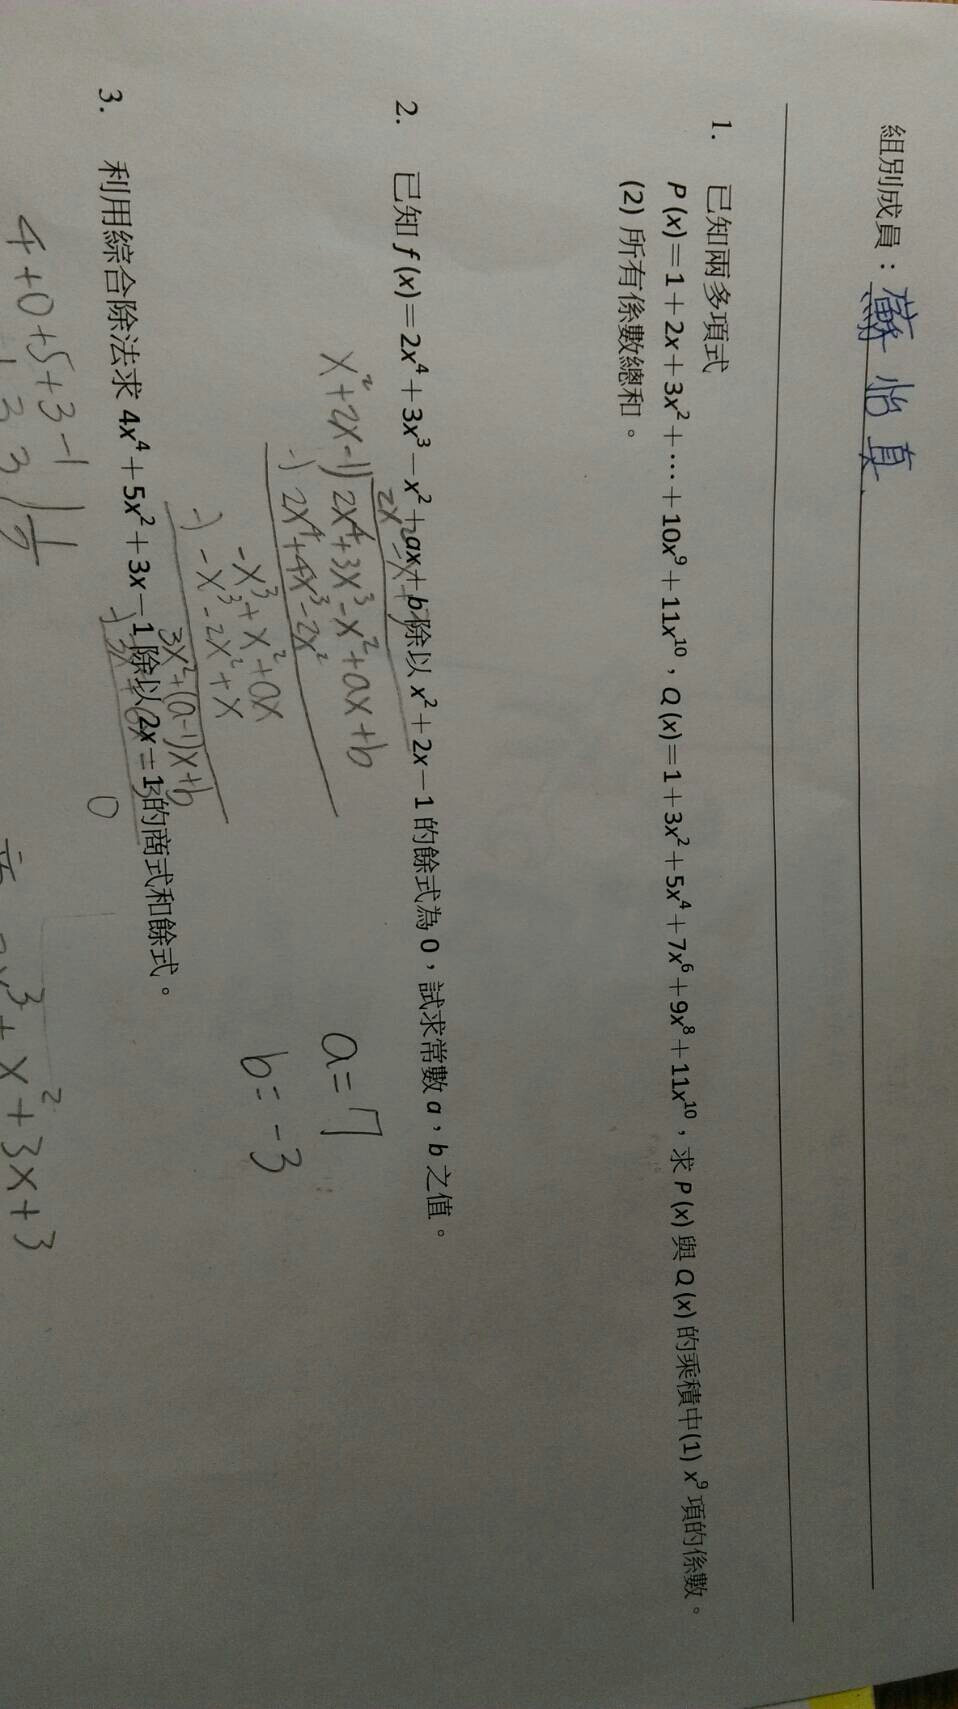 組別成員：蕭怡真
1. 已知兩多項式
P (x)＝1＋2x＋3x²＋⋯＋10x⁹＋11x¹⁰，Q (x)＝1＋3x²＋5x⁴＋7x⁶＋9x⁸＋11x¹⁰，求 P (x) 與 Q (x) 的乘積中(1) x⁹ 項的係數。
(2) 所有係數總和。
2. 已知 f (x)＝2x⁴＋3x³－x²＋ax＋b 除以 x²＋2x－1 的餘式為 0，試求常數 a，b 之值。
2x²-x+3
x²+2x-1)2x⁴+3x³-x²+ax+b
-) 2x⁴+4x³-2x²
-x³+x²+ax
-) -x³-2x²+x
3x²+(a-1)x+b
-) 3x²+6x-3
0
a=7
b=-3
3. 利用綜合除法求 4x⁴＋5x²＋3x－1 除以 2x－1 的商式和餘式。
4+0+5+3-1
x³+x²+3x+3